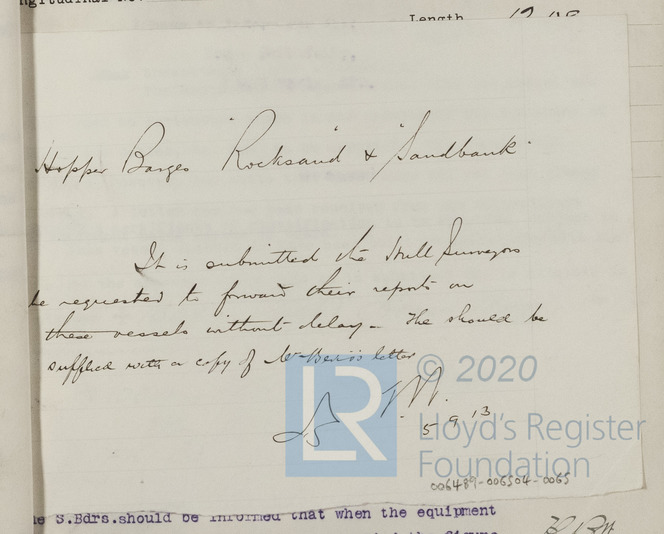 Length
Hopper Barges "Rocksand" & "Sandbank"
It is submitted the Hull Surveyors
be requested to forward their report on
these vessels without delay - The should be
supplied with a copy of Mr letter
5 9 13
© 2020
Lloyd's Register
Foundation
006489-006504-0065
S.Bdrs.should be informed that when the equipment